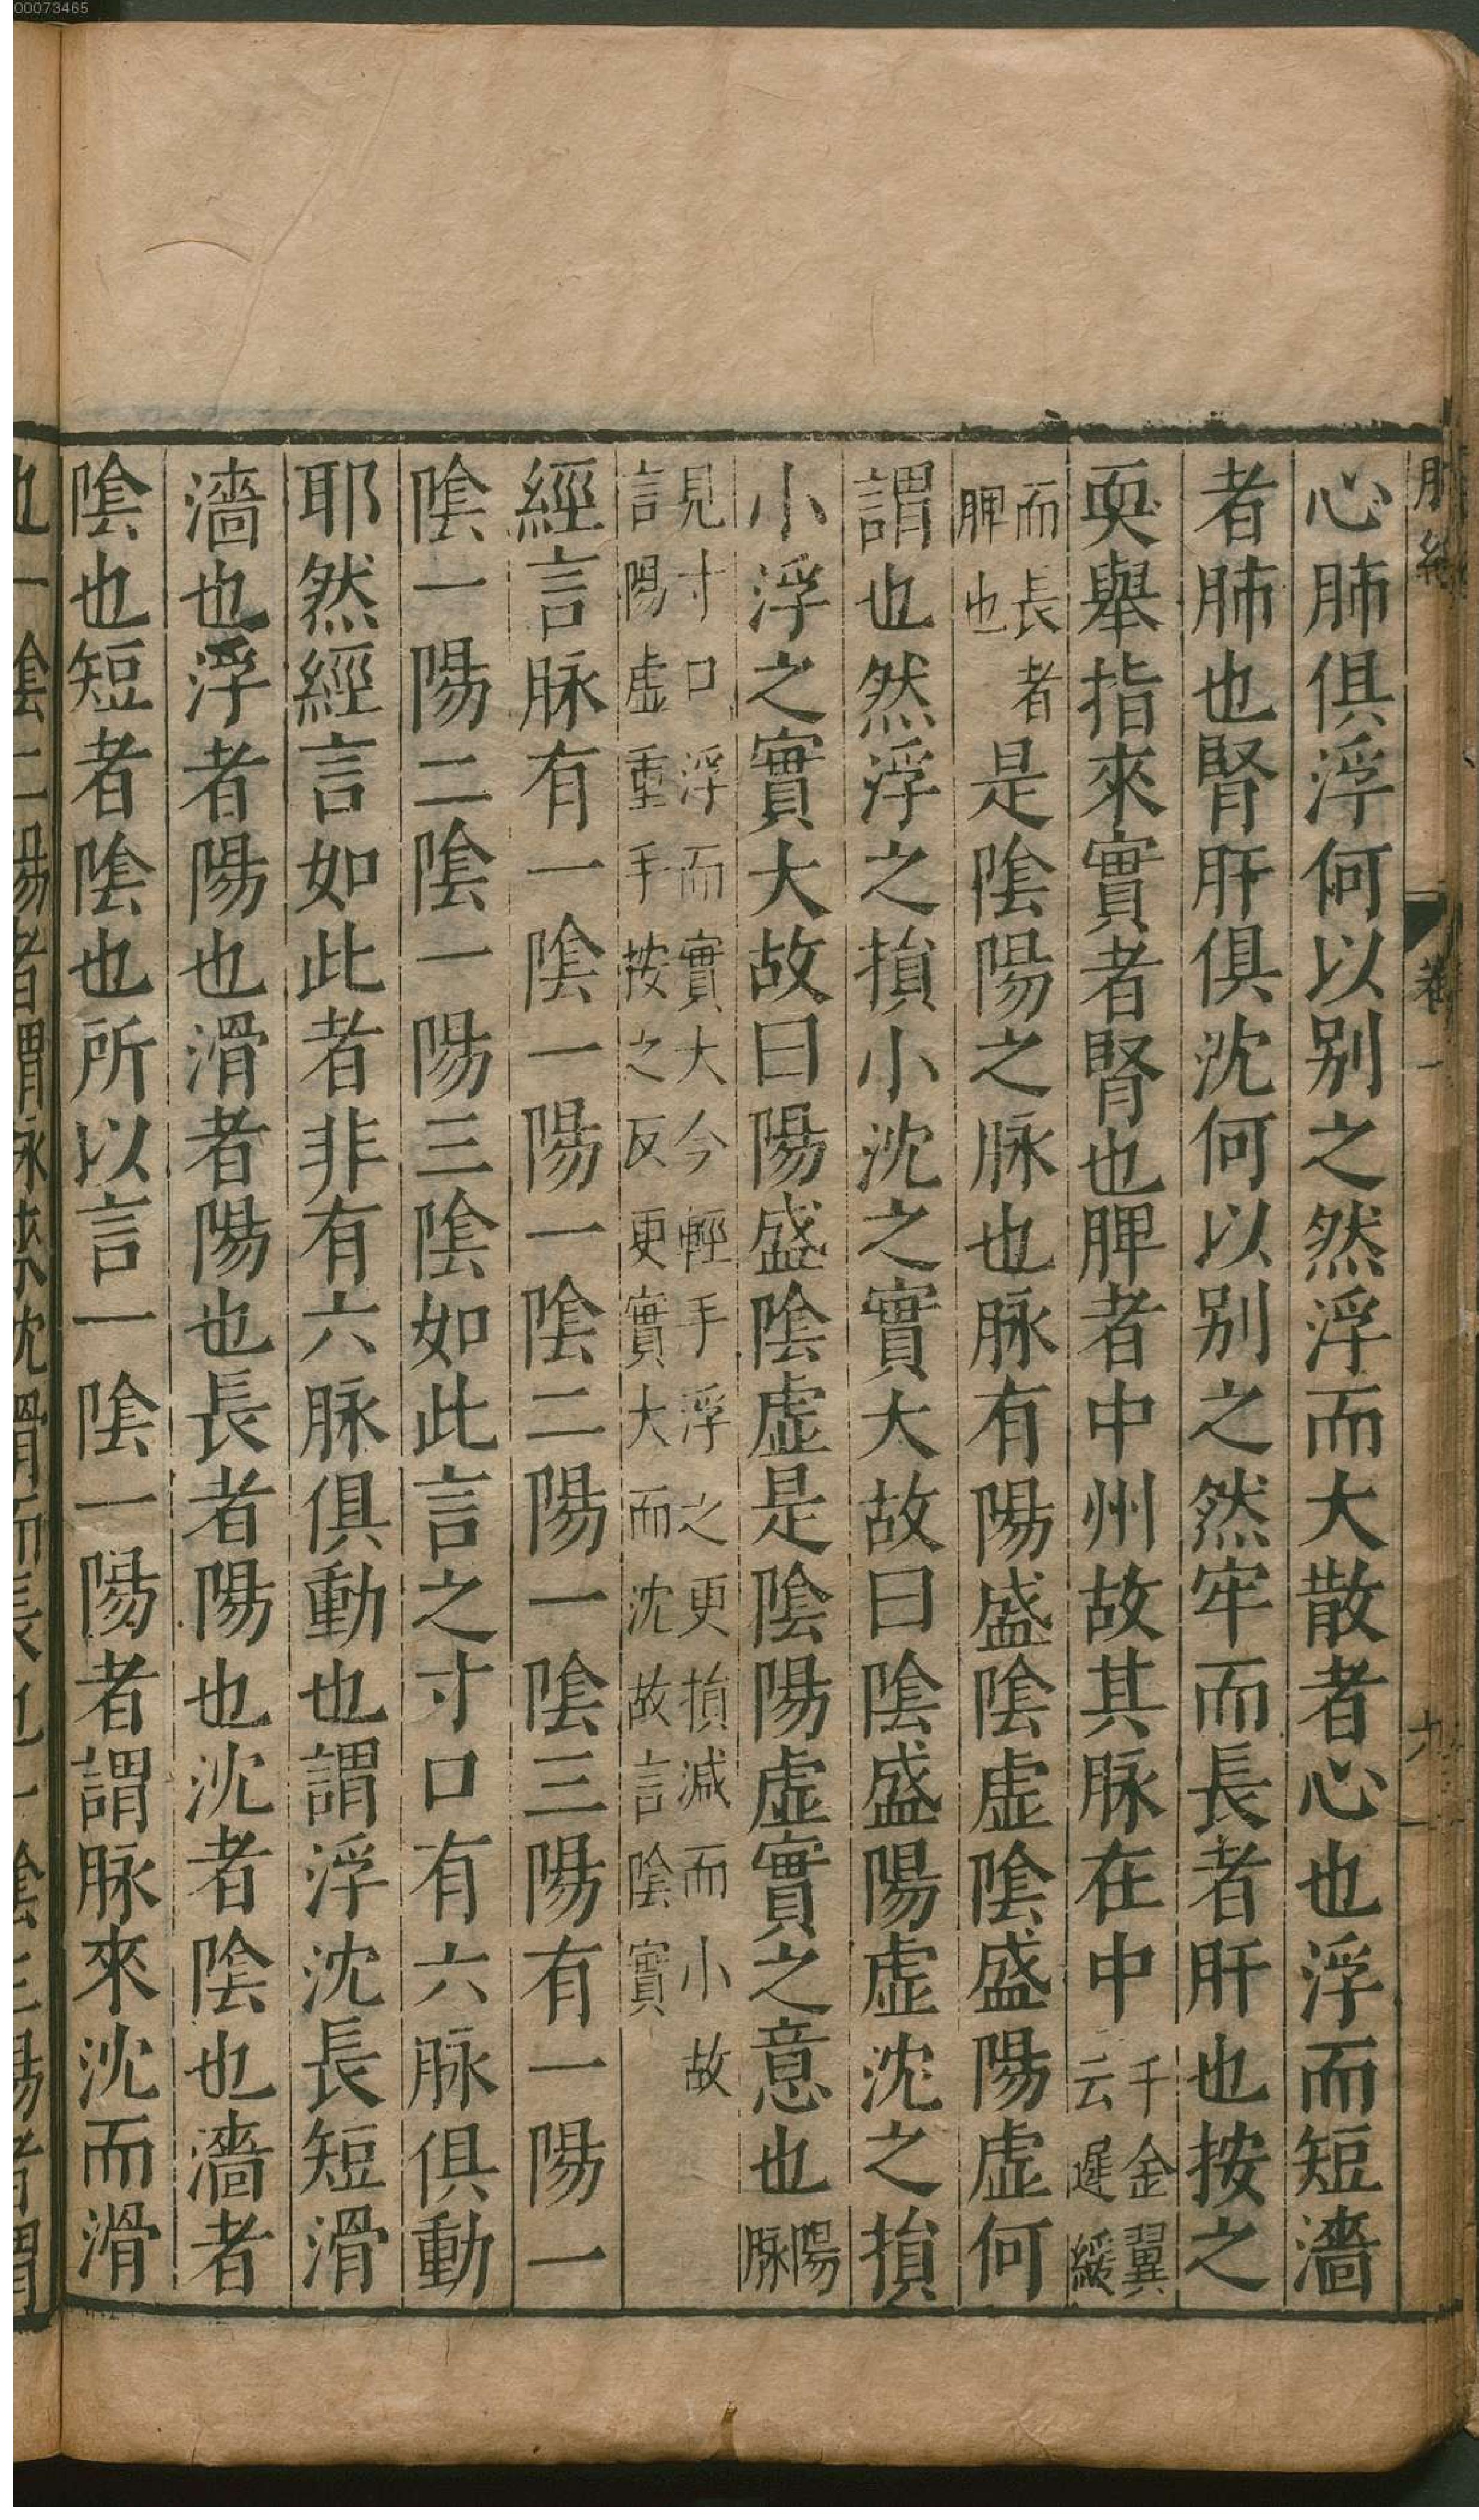 00073465
脉經 卷一 九
心肺俱浮何以别之然浮而大散者心也浮而短濇
者肺也腎肝俱沈何以别之然牢而長者肝也按之
耎舉指來實者腎也脾者中州故其脉在中千金翼云遲緩
而長者脾也是陰陽之脉也脉有陽盛陰虛陰盛陽虛何
謂也然浮之損小沈之實大故曰陰盛陽虛沈之損
小浮之實大故曰陽盛陰虛是陰陽虛實之意也陽脉
見寸口浮而實大今輕手浮之更損減而小故
言陽虛重手按之反更實大而沈故言陰實
經言脉有一陰一陽一陰二陽一陰三陽有一陽一
陰一陽二陰一陽三陰如此言之寸口有六脉俱動
耶然經言如此者非有六脉俱動也謂浮沈長短滑
濇也浮者陽也滑者陽也長者陽也沈者陰也濇者
陰也短者陰也所以言一陰一陽者謂脉來沈而滑
也一陰二陽者謂脉來沈滑而長也一陰三陽者謂